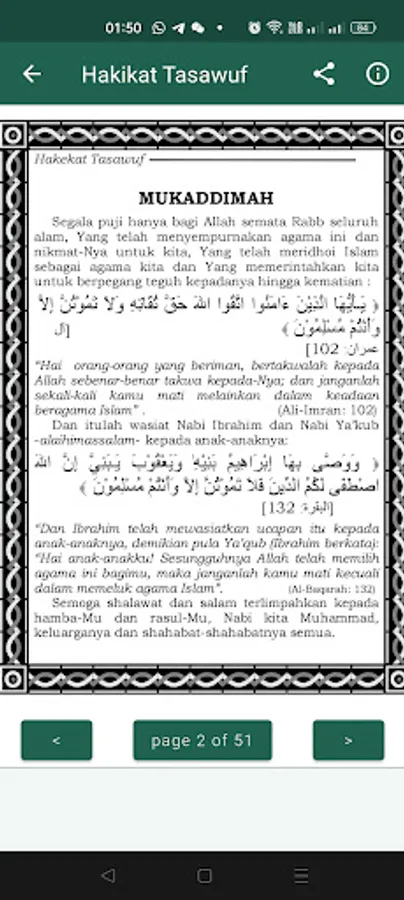 01:50
84
Hakikat Tasawuf
Hakekat Tasawuf
MUKADDIMAH
Segala puji hanya bagi Allah semata Rabb seluruh
alam, Yang telah menyempurnakan agama ini dan
nikmat-Nya untuk kita, Yang telah meridhoi Islam
sebagai agama kita dan Yang memerintahkan kita
untuk berpegang teguh kepadanya hingga kematian :
﴿ يَـٰأَيُّهَا الَّذِيْنَ ءَامَنُوا اتَّقُوا اللهَ حَقَّ تُقَاتِهِ وَلاَ تَمُوْتُنَّ إِلاَّ
وَأَنتُمْ مُسْلِمُوْنَ ﴾ [آل
عمران: 102]
“Hai orang-orang yang beriman, bertakwalah kepada
Allah sebenar-benar takwa kepada-Nya; dan janganlah
sekali-kali kamu mati melainkan dalam keadaan
beragama Islam” . (Ali-Imran: 102)
Dan itulah wasiat Nabi Ibrahim dan Nabi Ya’kub
-alaihimassalam- kepada anak-anaknya:
﴿ وَوَصَّى بِهَا إِبْرَاهِيمُ بَنِيْهِ وَيَعْقُوْبُ يَـبَنِيَّ إِنَّ اللهَ
اصْطَفَى لَكُمُ الدِّيْنَ فَلاَ تَمُوْتُنَّ إِلاَّ وَأَنْتُمْ مُسْلِمُوْنَ ﴾
[البقرة: 132]
“Dan Ibrahim telah mewasiatkan ucapan itu kepada
anak-anaknya, demikian pula Ya’qub (Ibrahim berkata):
“Hai anak-anakku! Sesungguhnya Allah telah memilih
agama ini bagimu, maka janganlah kamu mati kecuali
dalam memeluk agama Islam”. (Al-Baqarah: 132)
Semoga shalawat dan salam terlimpahkan kepada
hamba-Mu dan rasul-Mu, Nabi kita Muhammad,
keluarganya dan shahabat-shahabatnya semua.
< page 2 of 51 >